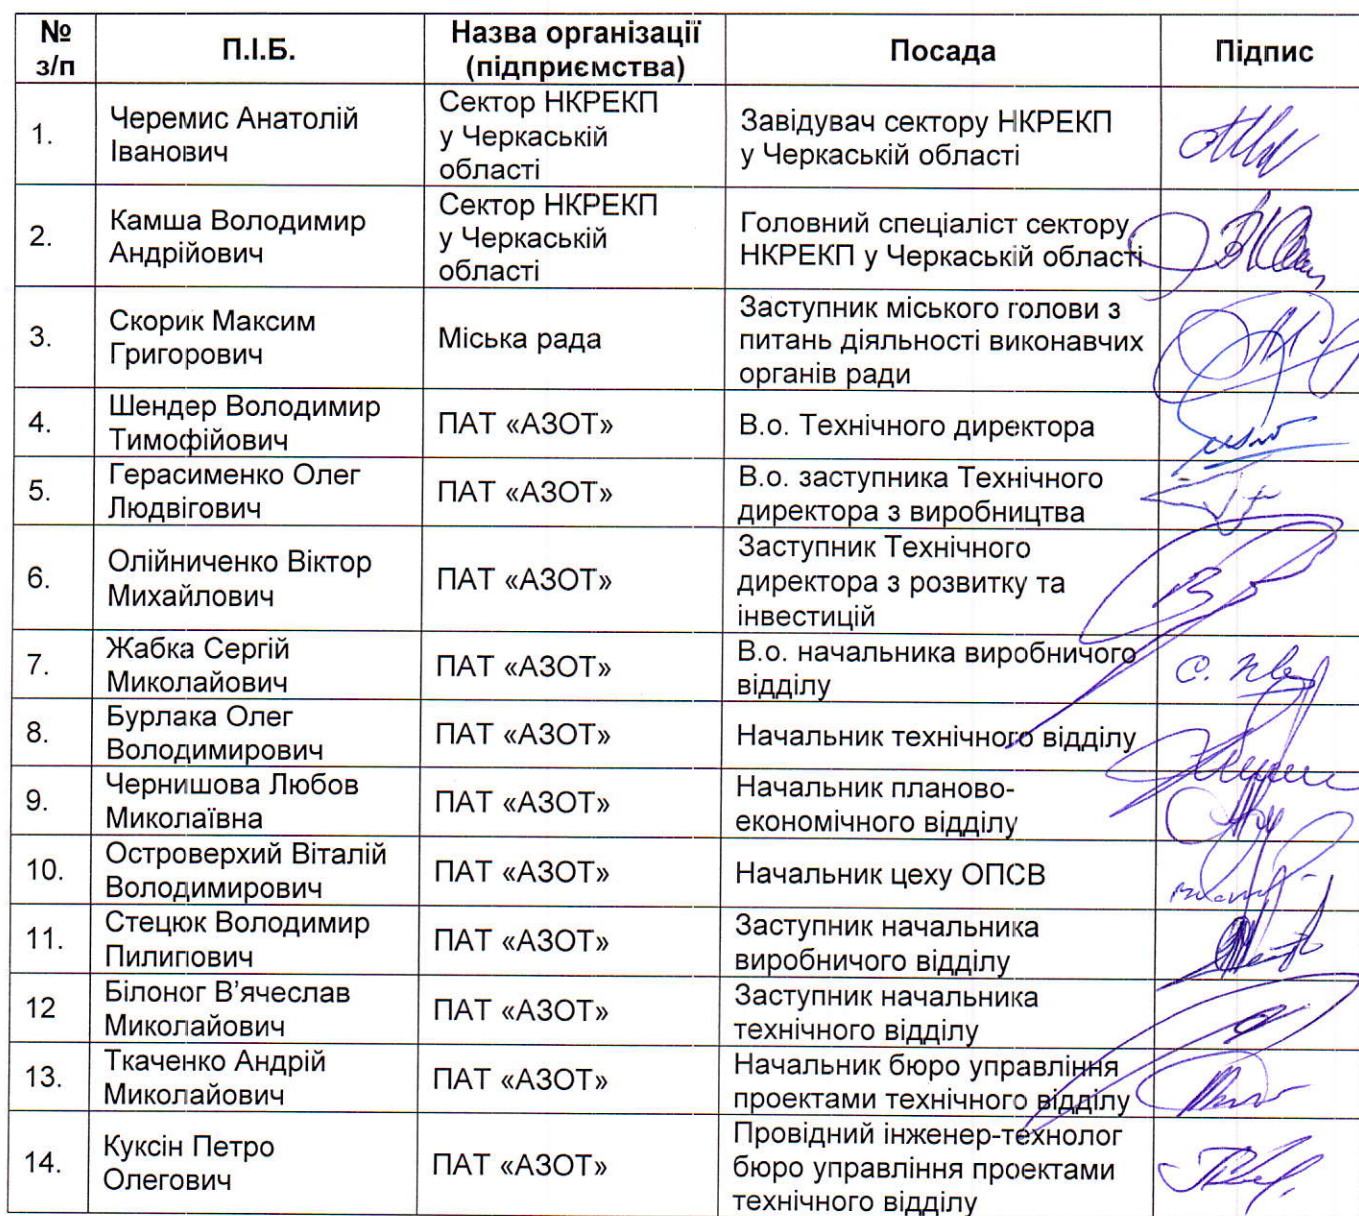 № з/п П.І.Б. Назва організації (підприємства) Посада Підпис
1. Черемис Анатолій Іванович Сектор НКРЕКП у Черкаській області Завідувач сектору НКРЕКП у Черкаській області
2. Камша Володимир Андрійович Сектор НКРЕКП у Черкаській області Головний спеціаліст сектору НКРЕКП у Черкаській області
3. Скорик Максим Григорович Міська рада Заступник міського голови з питань діяльності виконавчих органів ради
4. Шендер Володимир Тимофійович ПАТ «АЗОТ» В.о. Технічного директора
5. Герасименко Олег Людвігович ПАТ «АЗОТ» В.о. заступника Технічного директора з виробництва
6. Олійниченко Віктор Михайлович ПАТ «АЗОТ» Заступник Технічного директора з розвитку та інвестицій
7. Жабка Сергій Миколайович ПАТ «АЗОТ» В.о. начальника виробничого відділу
8. Бурлака Олег Володимирович ПАТ «АЗОТ» Начальник технічного відділу
9. Чернишова Любов Миколаївна ПАТ «АЗОТ» Начальник планово-економічного відділу
10. Островерхий Віталій Володимирович ПАТ «АЗОТ» Начальник цеху ОПСВ
11. Стецюк Володимир Пилипович ПАТ «АЗОТ» Заступник начальника виробничого відділу
12 Білоног В’ячеслав Миколайович ПАТ «АЗОТ» Заступник начальника технічного відділу
13. Ткаченко Андрій Миколайович ПАТ «АЗОТ» Начальник бюро управління проектами технічного відділу
14. Куксін Петро Олегович ПАТ «АЗОТ» Провідний інженер-технолог бюро управління проектами технічного відділу